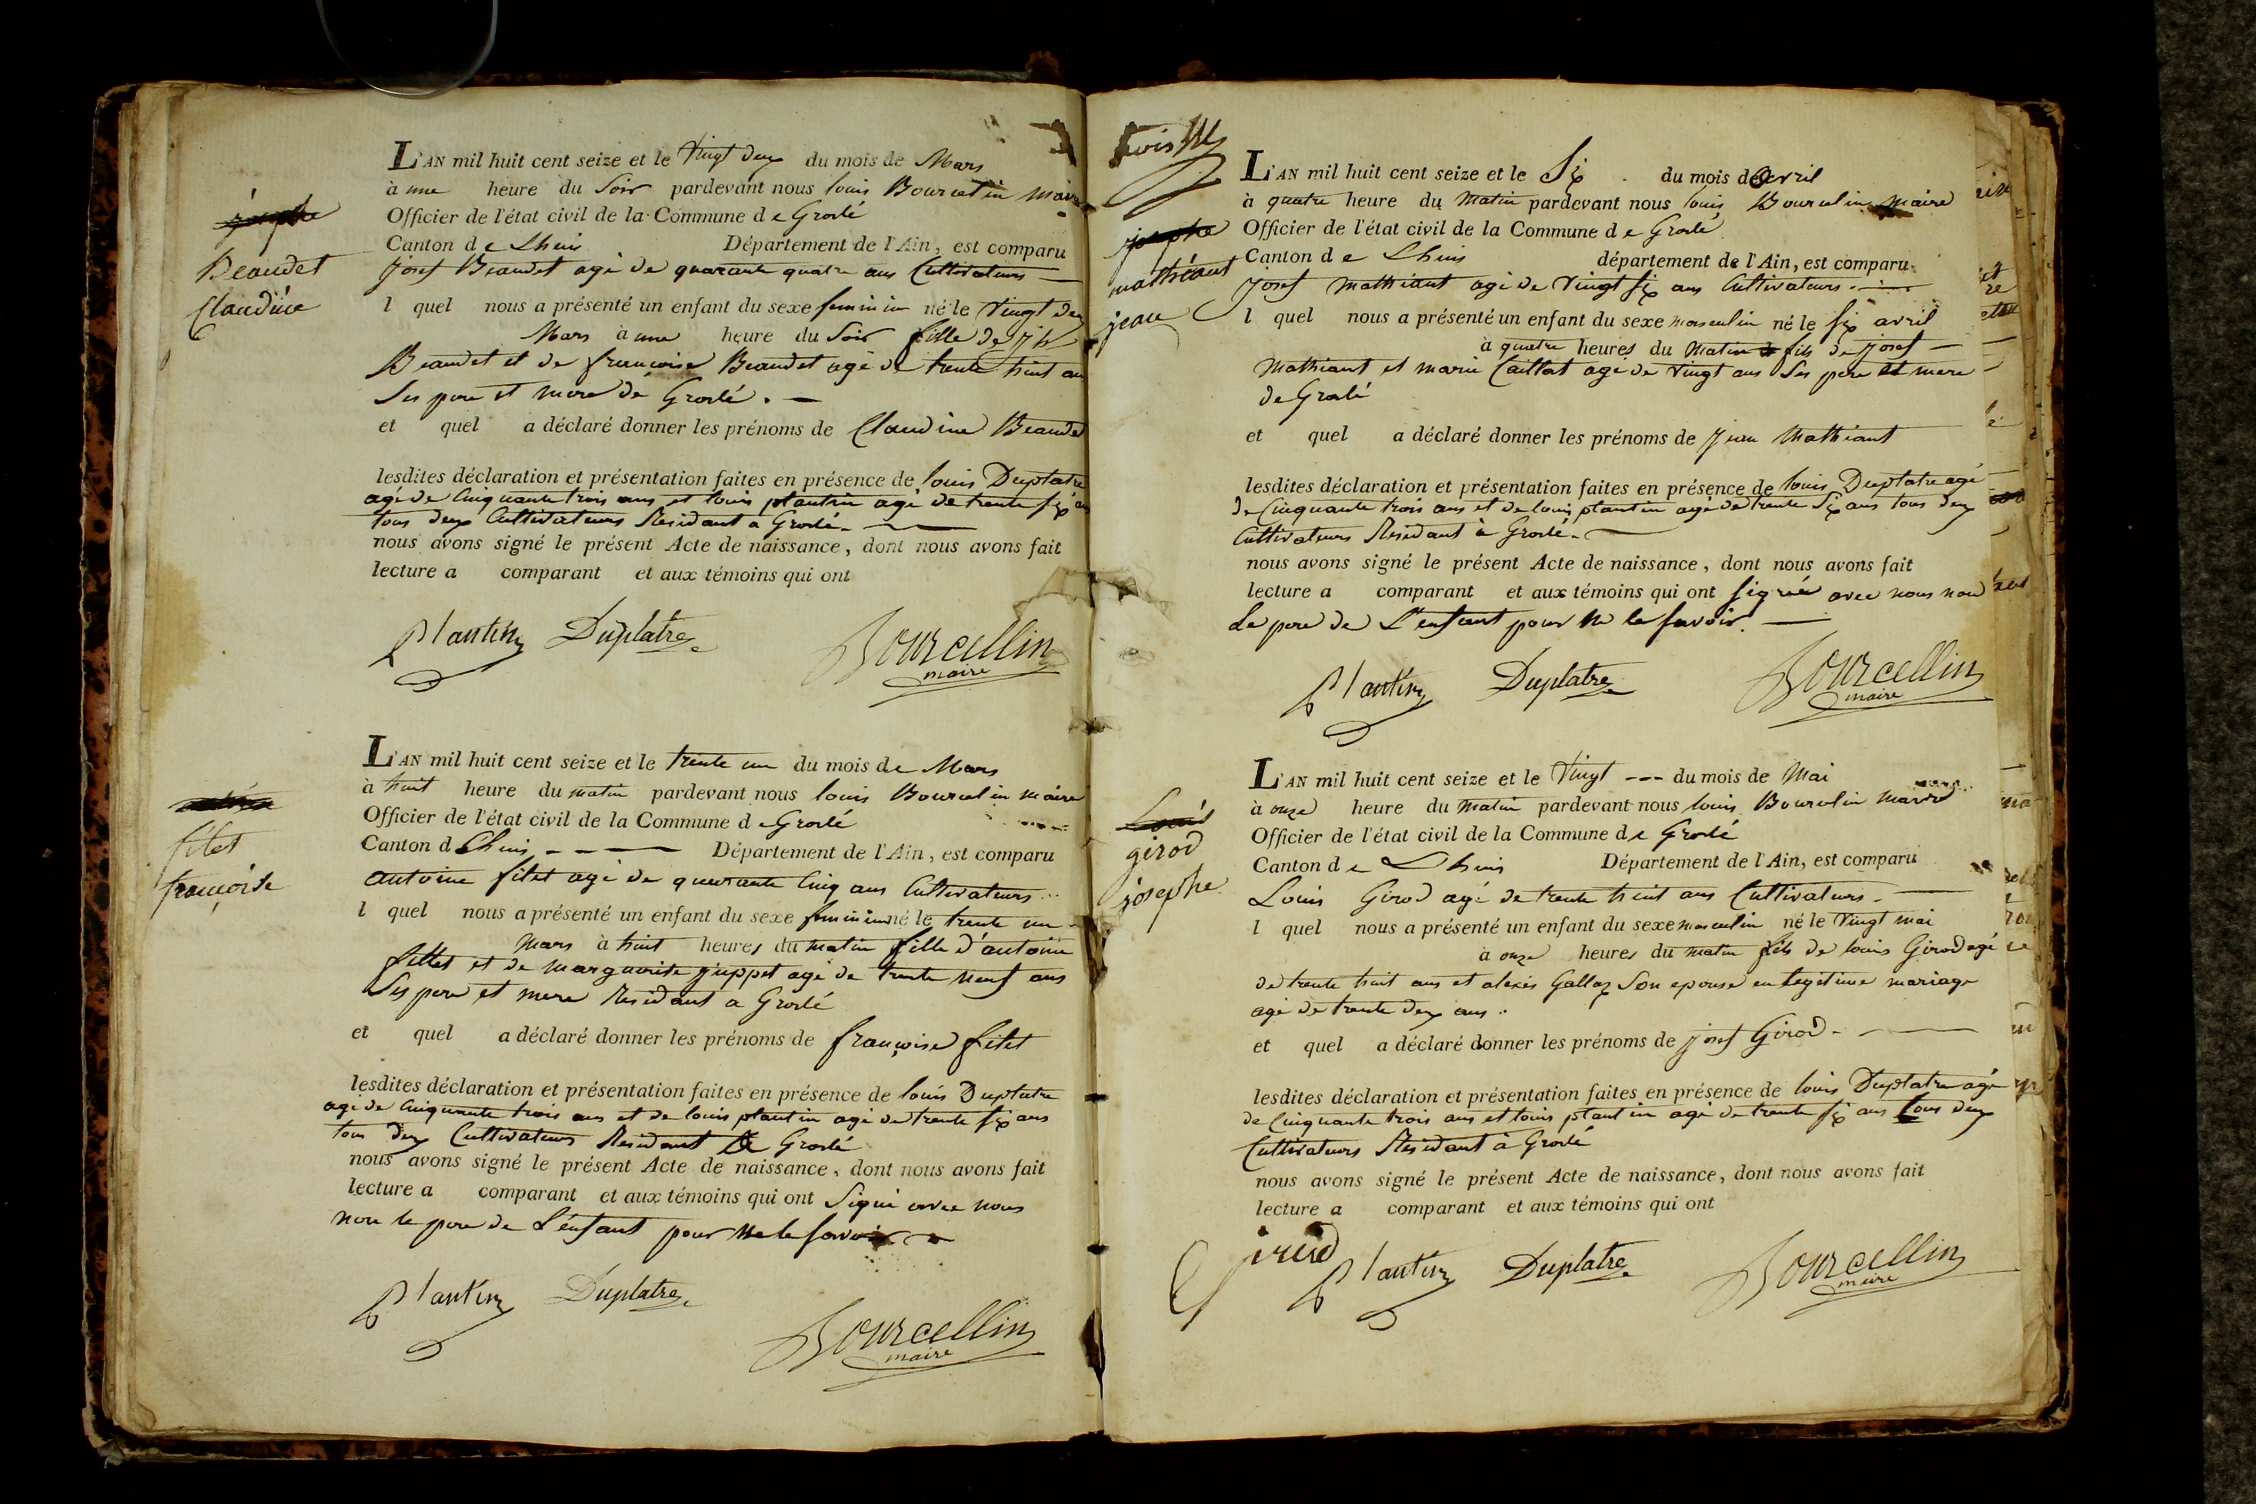 josephe
Beaudet
Claudine
L'AN mil huit cent seize et le vingt deux du mois de Mars
à une heure du Soir pardevant nous louis Bourcelin maire
Officier de l'état civil de la Commune de Groslé
Canton de Lhuis Département de l'Ain, est comparu
josef Beaudet agé de quarante quatre ans Cultivateurs
l quel nous a présenté un enfant du sexe feminin né le Vingt deux
Mars à une heure du Soir fille de jh
Beaudet et de françoise Beaudet agé de trente huit ans
Ses pere et mere de Groslé.
et quel a déclaré donner les prénoms de Claudine Beaudet
lesdites déclaration et présentation faites en présence de louis Duplatre
agé de Cinquante trois ans et louis plantin agé de trente six ans
tous deux Cultivateurs Residant à Groslé.
nous avons signé le présent Acte de naissance, dont nous avons fait
lecture a comparant et aux témoins qui ont
Plantin Duplatre Bourcellin
maire
filet
françoise
L'AN mil huit cent seize et le trente un du mois de Mars
à huit heure du matin pardevant nous louis Bourcelin maire
Officier de l'état civil de la Commune de Groslé
Canton d Lhuis Département de l'Ain, est comparu
antoine filet agé de quarante Cinq ans Cultivateurs
l quel nous a présenté un enfant du sexe feminin né le trente un
Mars à huit heures du matin fille d'antoine
fillet et de marguerite juppet agé de trente neuf ans
Ses pere et mere Residant a Groslé
et quel a déclaré donner les prénoms de françoise filet
lesdites déclaration et présentation faites en présence de louis Duplatre
agé de Cinquante trois ans et de louis plantin agé de trente six ans
tous deux Cultivateurs Residant de Groslé
nous avons signé le présent Acte de naissance, dont nous avons fait
lecture a comparant et aux témoins qui ont Signé avec nous
non le pere de L'enfant pour ne le savoir
Plantin Duplatre
Bourcellin
maire
josephe
mathéant
jean
L'AN mil huit cent seize et le Six du mois de avril
à quatre heure du Matin pardevant nous louis Bourcelin maire
Officier de l'état civil de la Commune de Groslé
Canton de Lhuis département de l'Ain, est comparu
josef Mathiant agé de Vingt six ans Cultivateurs.
l quel nous a présenté un enfant du sexe masculin né le six avril
à quatre heures du Matin fils de josef
Mathiant et marie Caillat agé de vingt ans Ses pere et mere
de Groslé
et quel a déclaré donner les prénoms de jean Mathiant
lesdites déclaration et présentation faites en présence de louis Duplatre agé
de Cinquante trois ans et de louis plantin agé de trente Six ans tous deux
Cultivateurs Residant à Groslé.
nous avons signé le présent Acte de naissance, dont nous avons fait
lecture a comparant et aux témoins qui ont signé avec nous non
Le pere de L'enfant pour ne le savoir
Plantin Duplatre Bourcellin
maire
Louis
girod
josephe
L'AN mil huit cent seize et le Vingt --- du mois de Mai
à onze heure du Matin pardevant nous louis Bourcelin maire
Officier de l'état civil de la Commune de Groslé
Canton de Lhuis Département de l'Ain, est comparu
Louis Girod agé de trente huit ans Cultivateurs.
l quel nous a présenté un enfant du sexe masculin né le Vingt mai
à onze heures du matin fils de louis Girod agé
de trente huit ans et alexis Gallaz Son epouse en legitime mariage
agé de trente deux ans
et quel a déclaré donner les prénoms de josef Girod
lesdites déclaration et présentation faites en présence de louis Duplatre agé
de Cinquante trois ans et louis plantin agé de trente six ans tous deux
Cultivateurs Residant à Groslé
nous avons signé le présent Acte de naissance, dont nous avons fait
lecture a comparant et aux témoins qui ont
Plantin Duplatre Bourcellin
maire